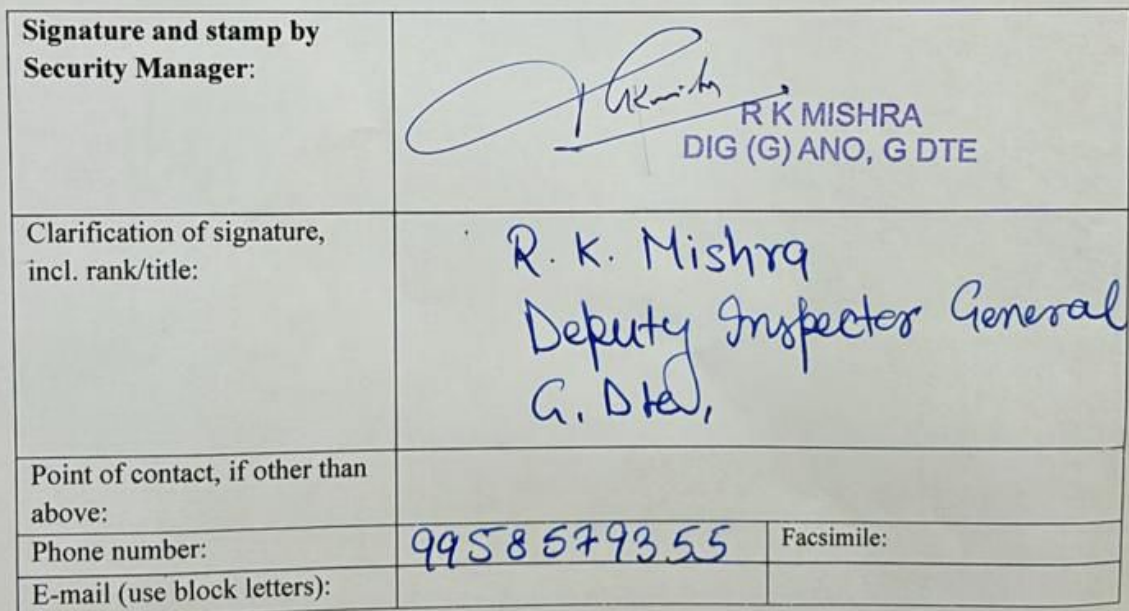 Signature and stamp by
Security Manager:
RKMishra
R K MISHRA
DIG (G) ANO, G DTE
Clarification of signature,
incl. rank/title:
R. K. Mishra
Deputy Inspector General
G. Dte,
Point of contact, if other than
above:
Phone number:
9958579355
Facsimile:
E-mail (use block letters):